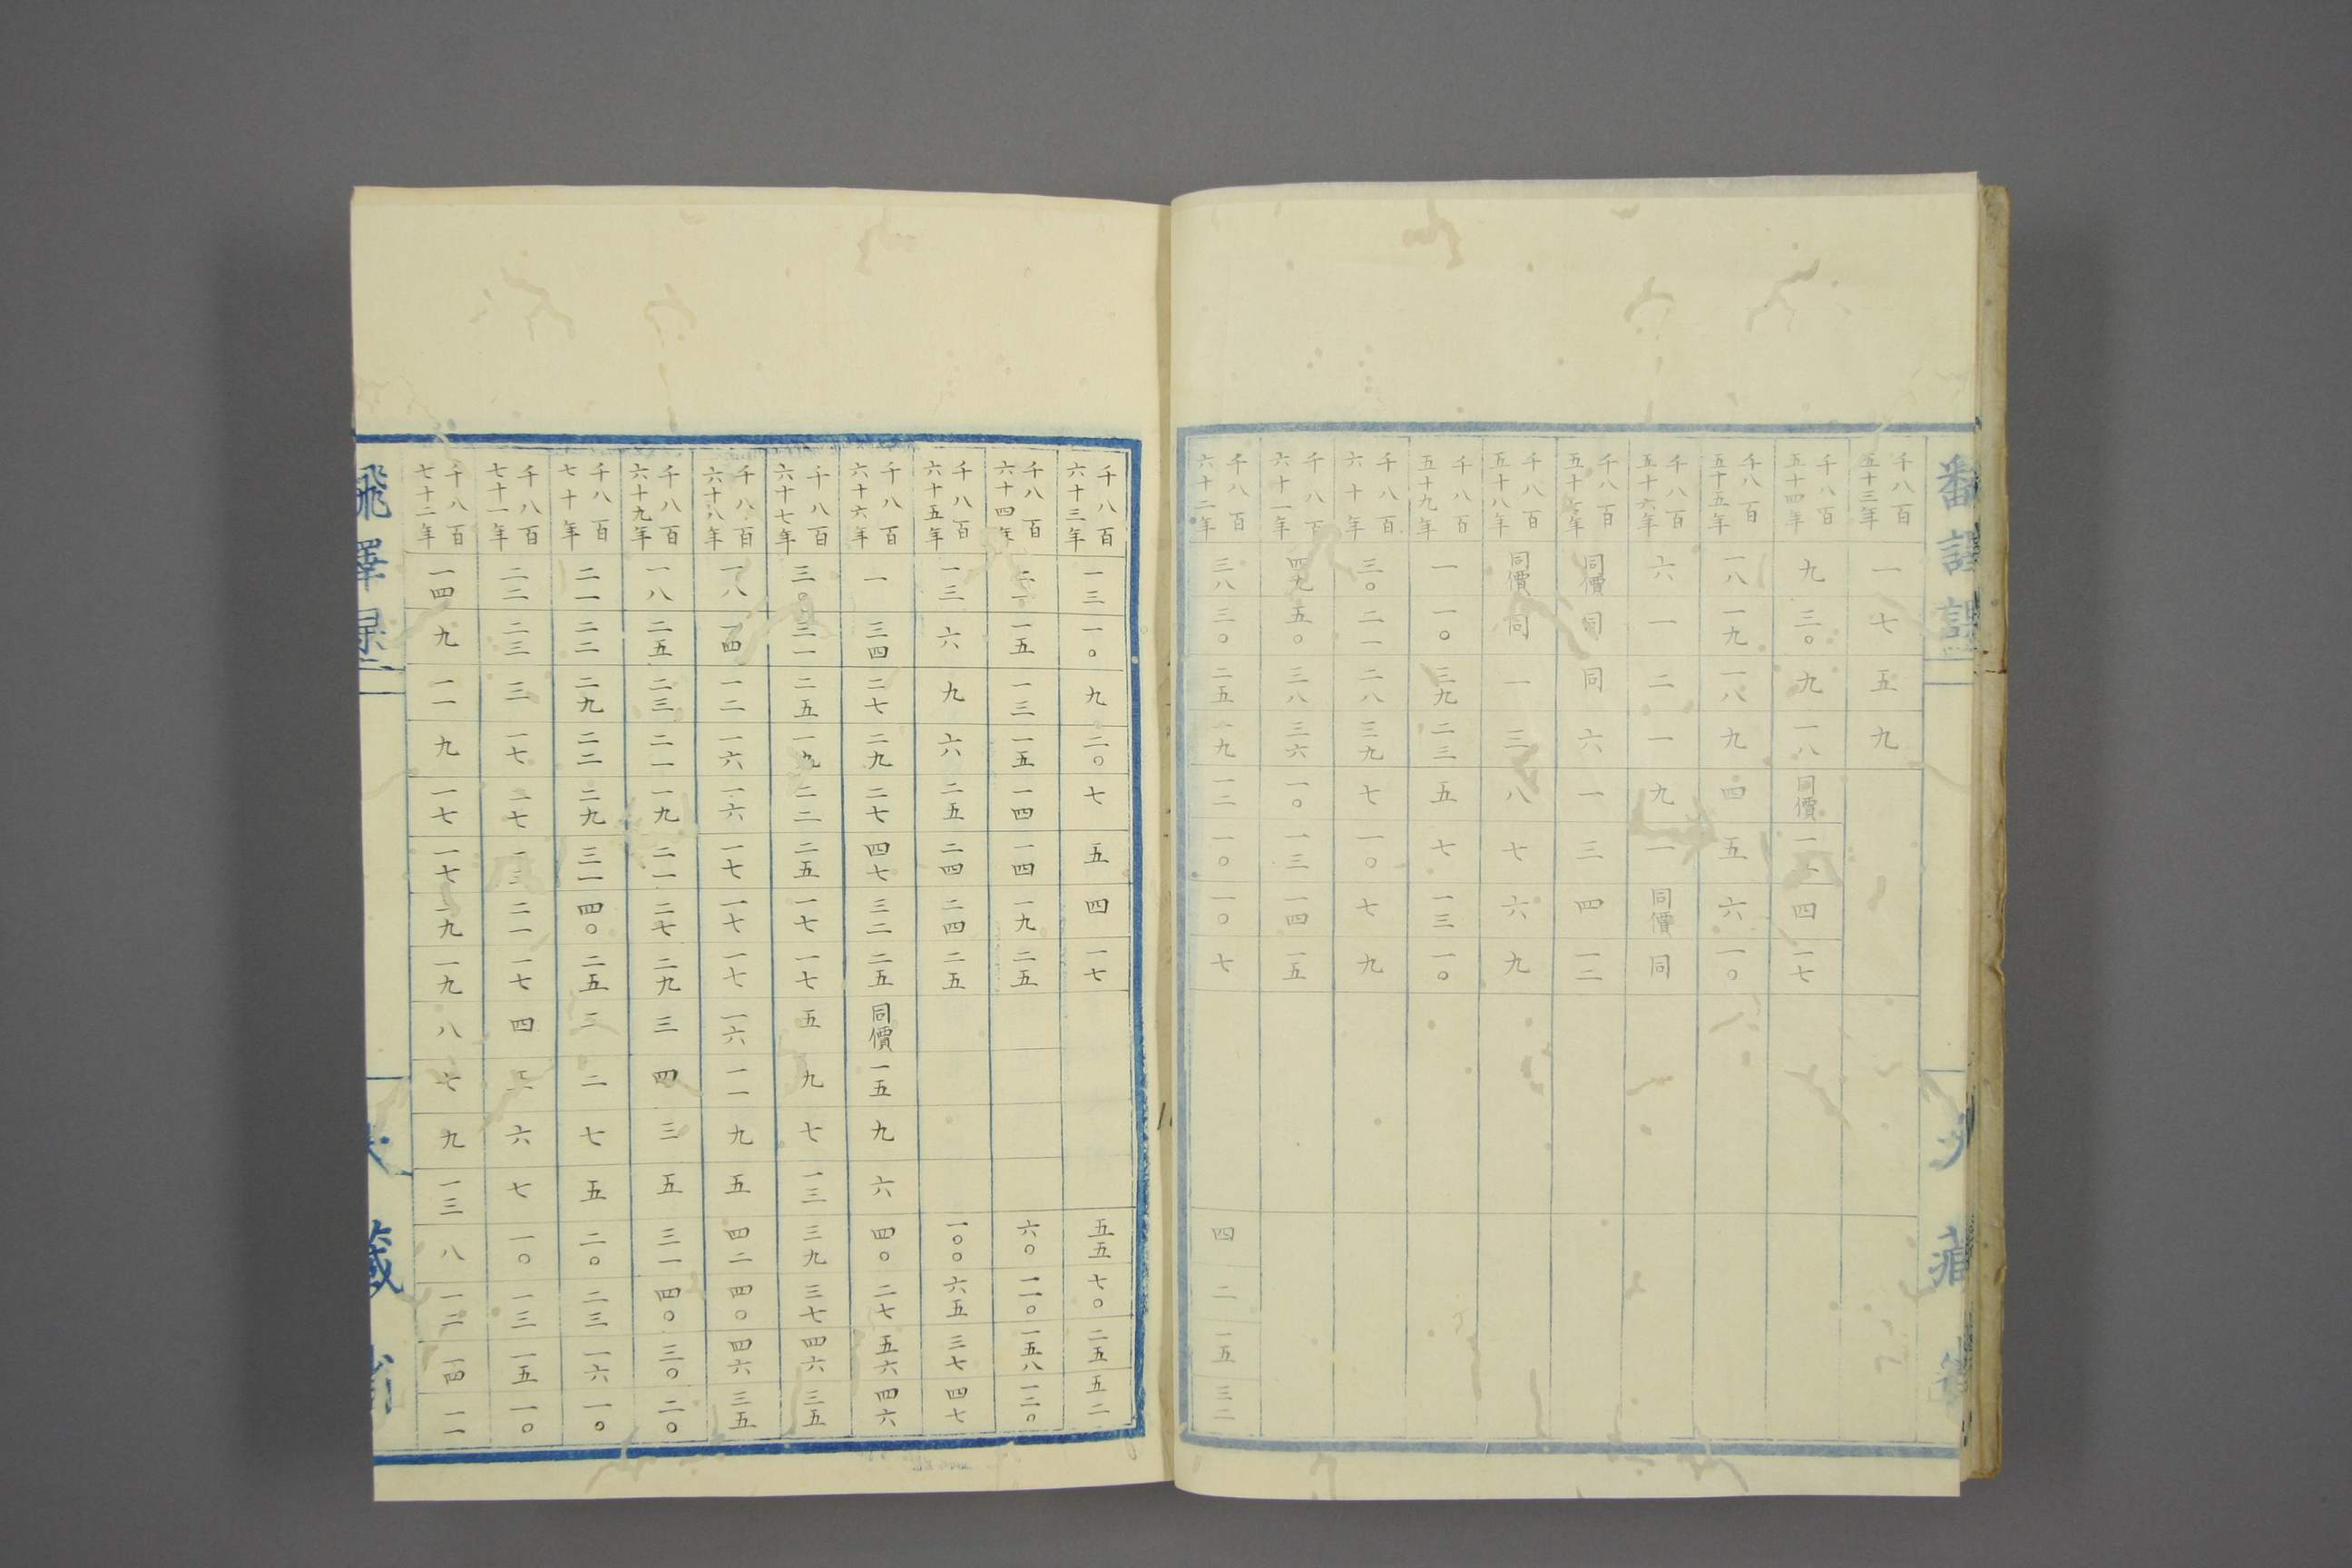 千八百五十三年 一 七 五 九
千八百五十四年 九 三〇 九 一八 同價 四 一七
千八百五十五年 一八 一九 一八 九 四 五 六 一〇
千八百五十六年 六 一 二 一 九 一 同價 同
千八百五十七年 同價 同 同 六 一 三 四 一二
千八百五十八年 同價 同 一 三 八 七 六 九
千八百五十九年 一 一〇 三九 二三 五 七 一三 一〇
千八百六十年 三〇 二一 二八 三九 七 一〇 七 九
千八百六十一年 四九 五〇 三八 三六 一〇 一三 一四 一五
千八百六十二年 三八 三〇 二五 一九 一二 一〇 一〇 七 四 二 一五 三二
千八百六十三年 一三 一〇 九 二〇 七 五 四 一七 五五 七〇 二五 五二
千八百六十四年 一五 一三 一五 一四 一四 一九 二五 六〇 一一〇 一五八 一二〇
千八百六十五年 一三 六 九 六 二五 二四 二四 二五 一〇〇 六五 三七 四七
千八百六十六年 一 三四 二七 二九 二七 四七 三二 二五 同價 一五 九 六 四〇 二七 五六 四六
千八百六十七年 三〇 三一 二五 一九 二二 二五 一七 一七 五 九 七 一三 三九 三七 四六 三五
千八百六十八年 一八 一四 一二 一六 一六 一七 一七 一七 一六 一一 九 五 四二 四〇 四六 三五
千八百六十九年 一八 二五 二三 二一 一九 二一 二七 二九 三 四 三 五 三一 四〇 三〇 二〇
千八百七十年 二一 二二 二九 二三 二九 三一 四〇 二五 二 二 七 五 二〇 二三 一六 一〇
千八百七十一年 二二 二三 三 一七 一七 二一 一七 四 六 七 一〇 一三 一五 一〇
千八百七十二年 一四 九 一一 九 一七 一七 一九 一九 八 七 九 一三 八 一二 一四 一一